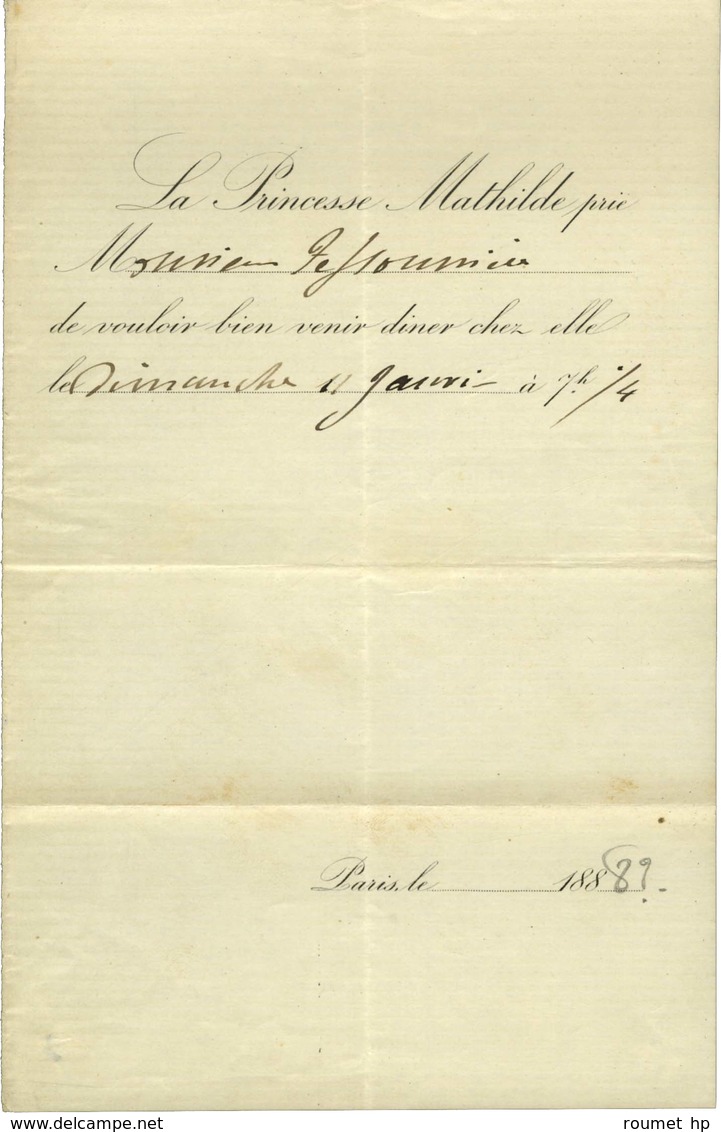 La Princesse Mathilde prie
Monsieur
de vouloir bien venir diner chez elle
le Dimanche 11 à 7h 1/4
Paris, le 188 8?
delcampe.net
roumet hp